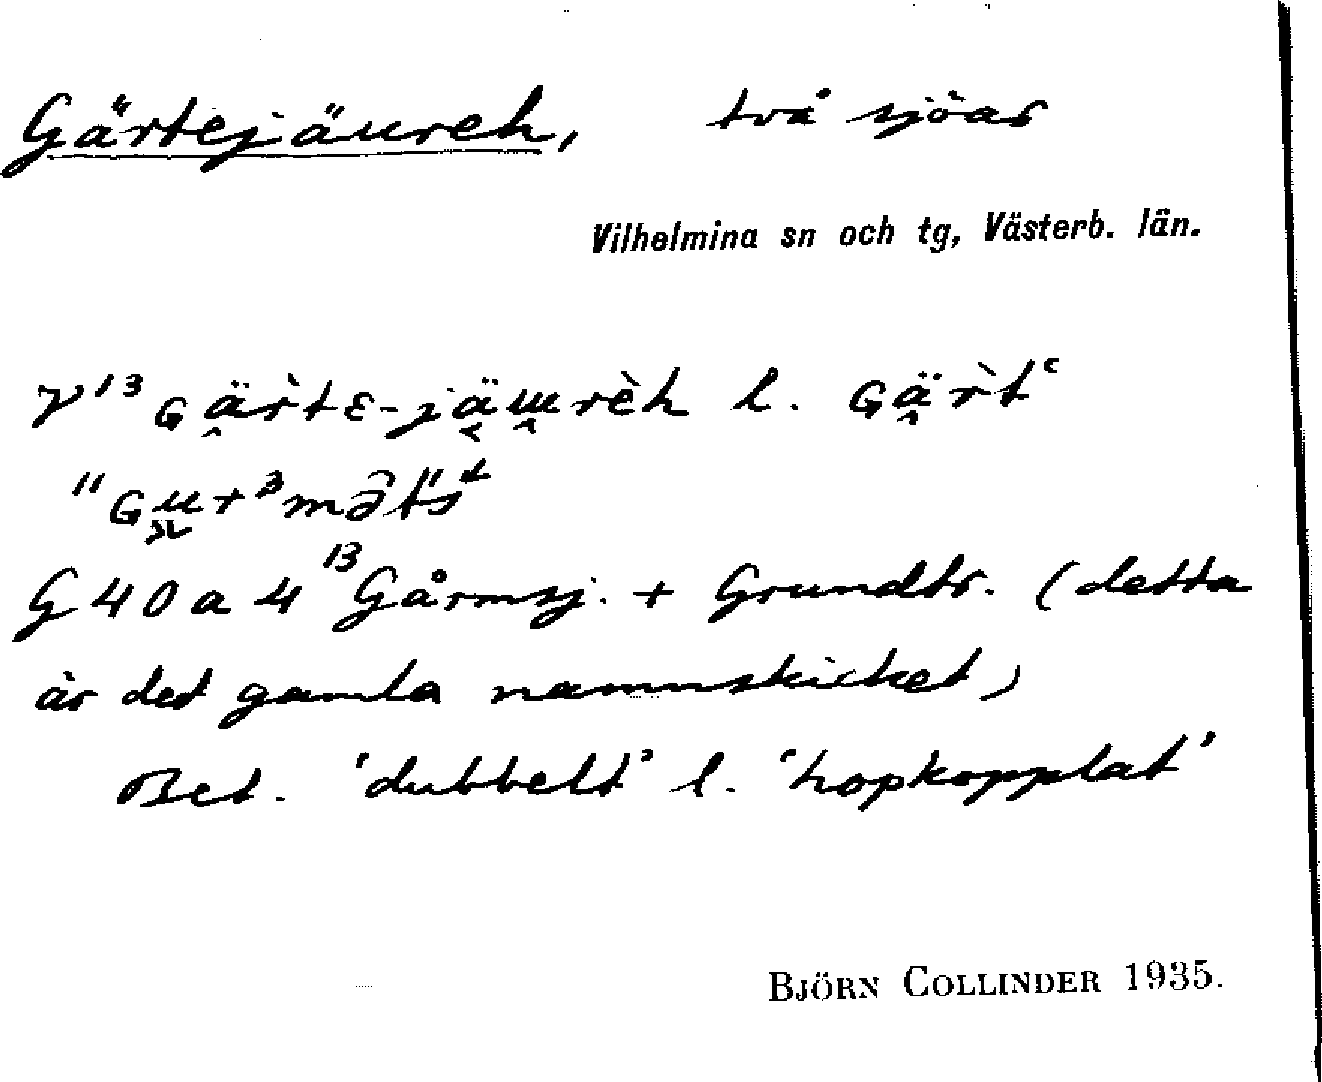 Gärtejäureh, två sjöar
Vilhelmina sn och tg, Västerb. län.
G 40 a 4 13 Gårmsj. + Grundtr. (detta
är det gamla namnskicket)
Bet. 'dubbelt' l. 'hopkopplat'
BJÖRN COLLINDER 1935.